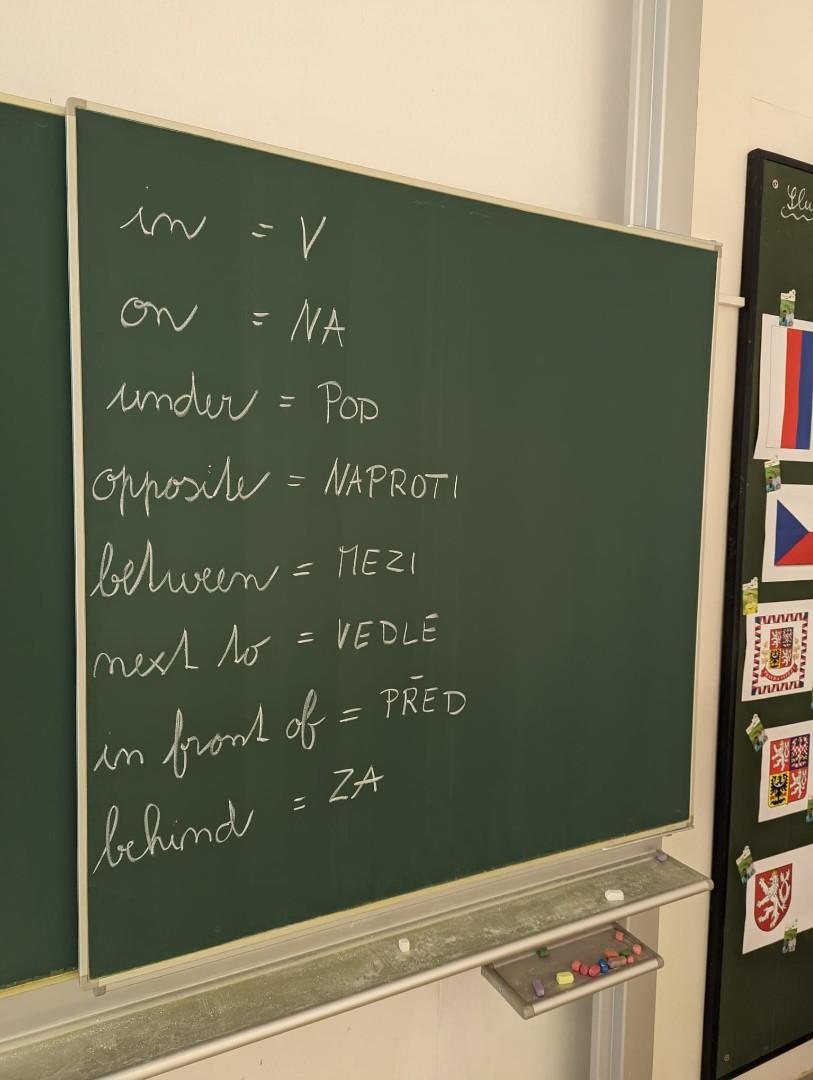 in = V
on = NA
under = POD
opposite = NAPROTI
between = MEZI
next to = VEDLE
in front of = PŘED
behind = ZA